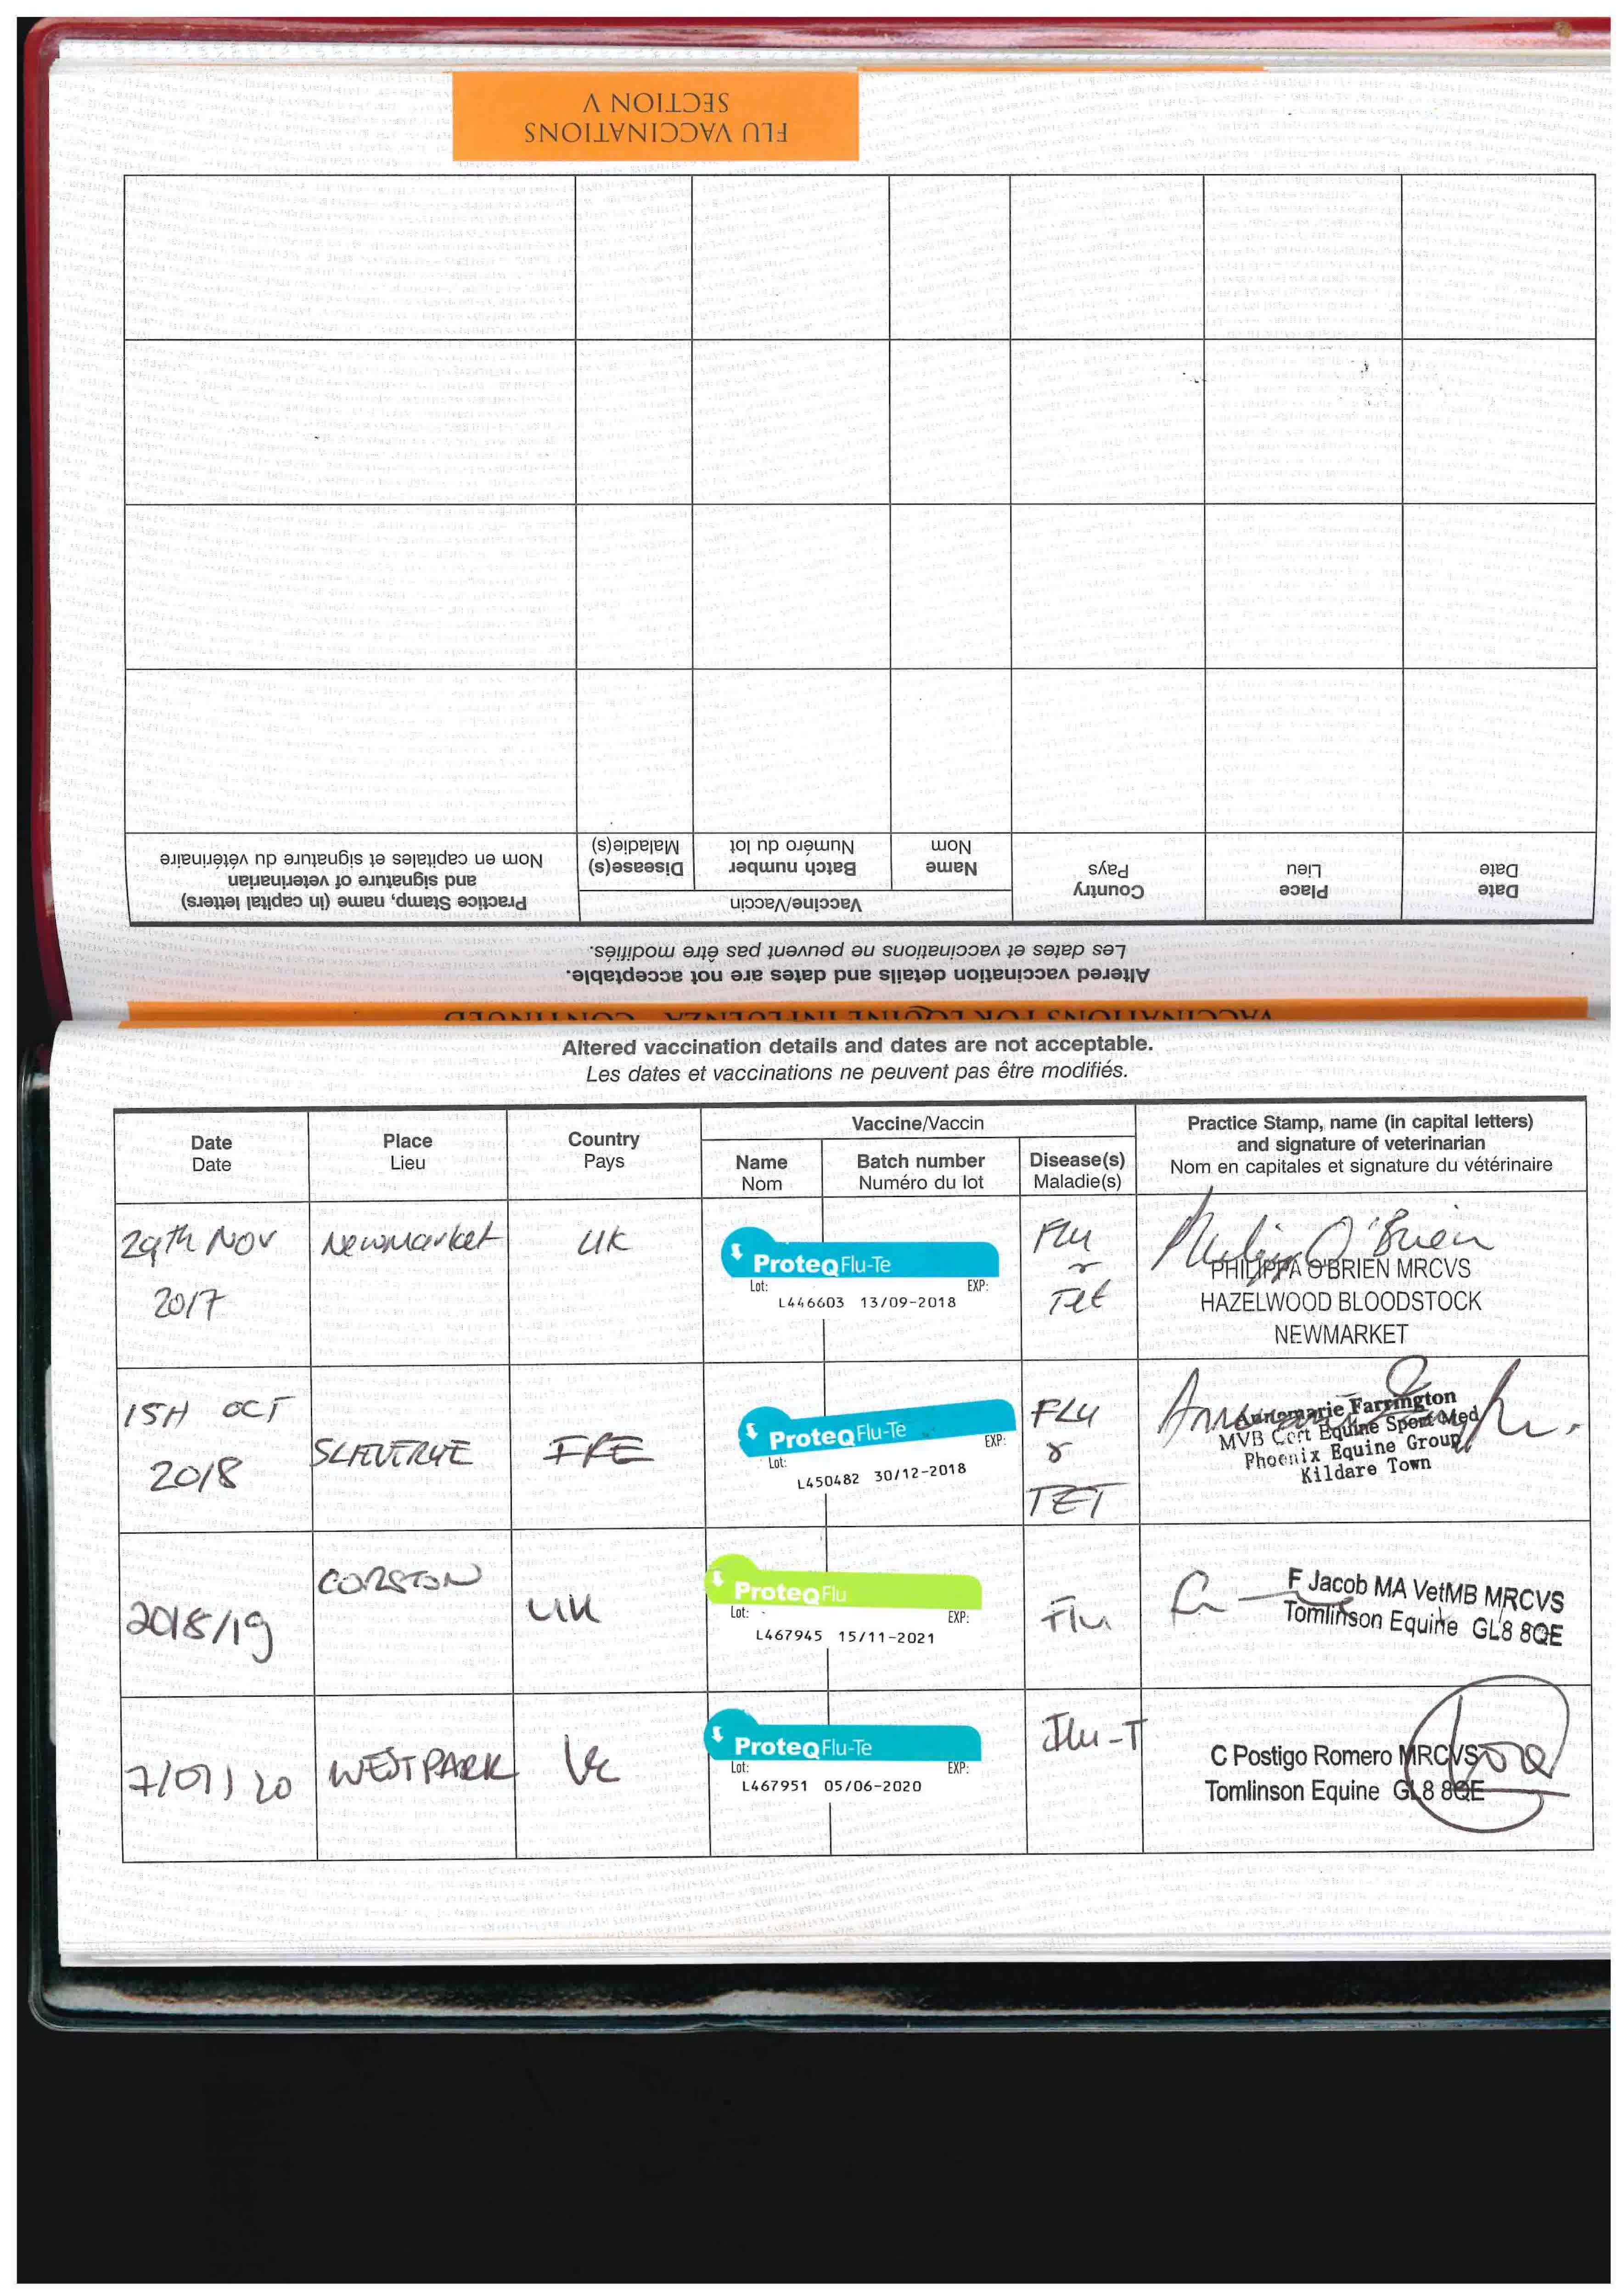 FLU VACCINATIONS
SECTION V
Altered vaccination details and dates are not acceptable.
Les dates et vaccinations ne peuvent pas être modifiés.
Date
Date
Place
Lieu
Country
Pays
Vaccine/Vaccin
Name
Nom
Batch number
Numéro du lot
Disease(s)
Maladie(s)
Practice Stamp, name (in capital letters)
and signature of veterinarian
Nom en capitales et signature du vétérinaire
VACCINATIONS FOR EQUINE INFLUENZA CONTINUED
Altered vaccination details and dates are not acceptable.
Les dates et vaccinations ne peuvent pas être modifiés.
Date
Date
Place
Lieu
Country
Pays
Vaccine/Vaccin
Name
Nom
Batch number
Numéro du lot
Disease(s)
Maladie(s)
Practice Stamp, name (in capital letters)
and signature of veterinarian
Nom en capitales et signature du vétérinaire
29th Nov
2017
Newmarket
UK
ProteqFlu-Te
Lot: EXP:
L446603 13/09-2018
Flu
&
Tet
Philippa O'Brien
PHILIPPA O'BRIEN MRCVS
HAZELWOOD BLOODSTOCK
NEWMARKET
15H OCT
2018
IRE
ProteqFlu-Te
Lot: EXP:
L450482 30/12-2018
FLU
&
TET
Annemarie Farrington
MVB Cert Equine Sport Med
Phoenix Equine Group
Kildare Town
2018/19
CORSTON
UK
ProteqFlu
Lot: EXP:
L467945 15/11-2021
Flu
F Jacob MA VetMB MRCVS
Tomlinson Equine GL8 8QE
WESTPARK
UK
ProteqFlu-Te
Lot: EXP:
L467951 05/06-2020
Flu-T
C Postigo Romero MRCVS
Tomlinson Equine GL8 8QE